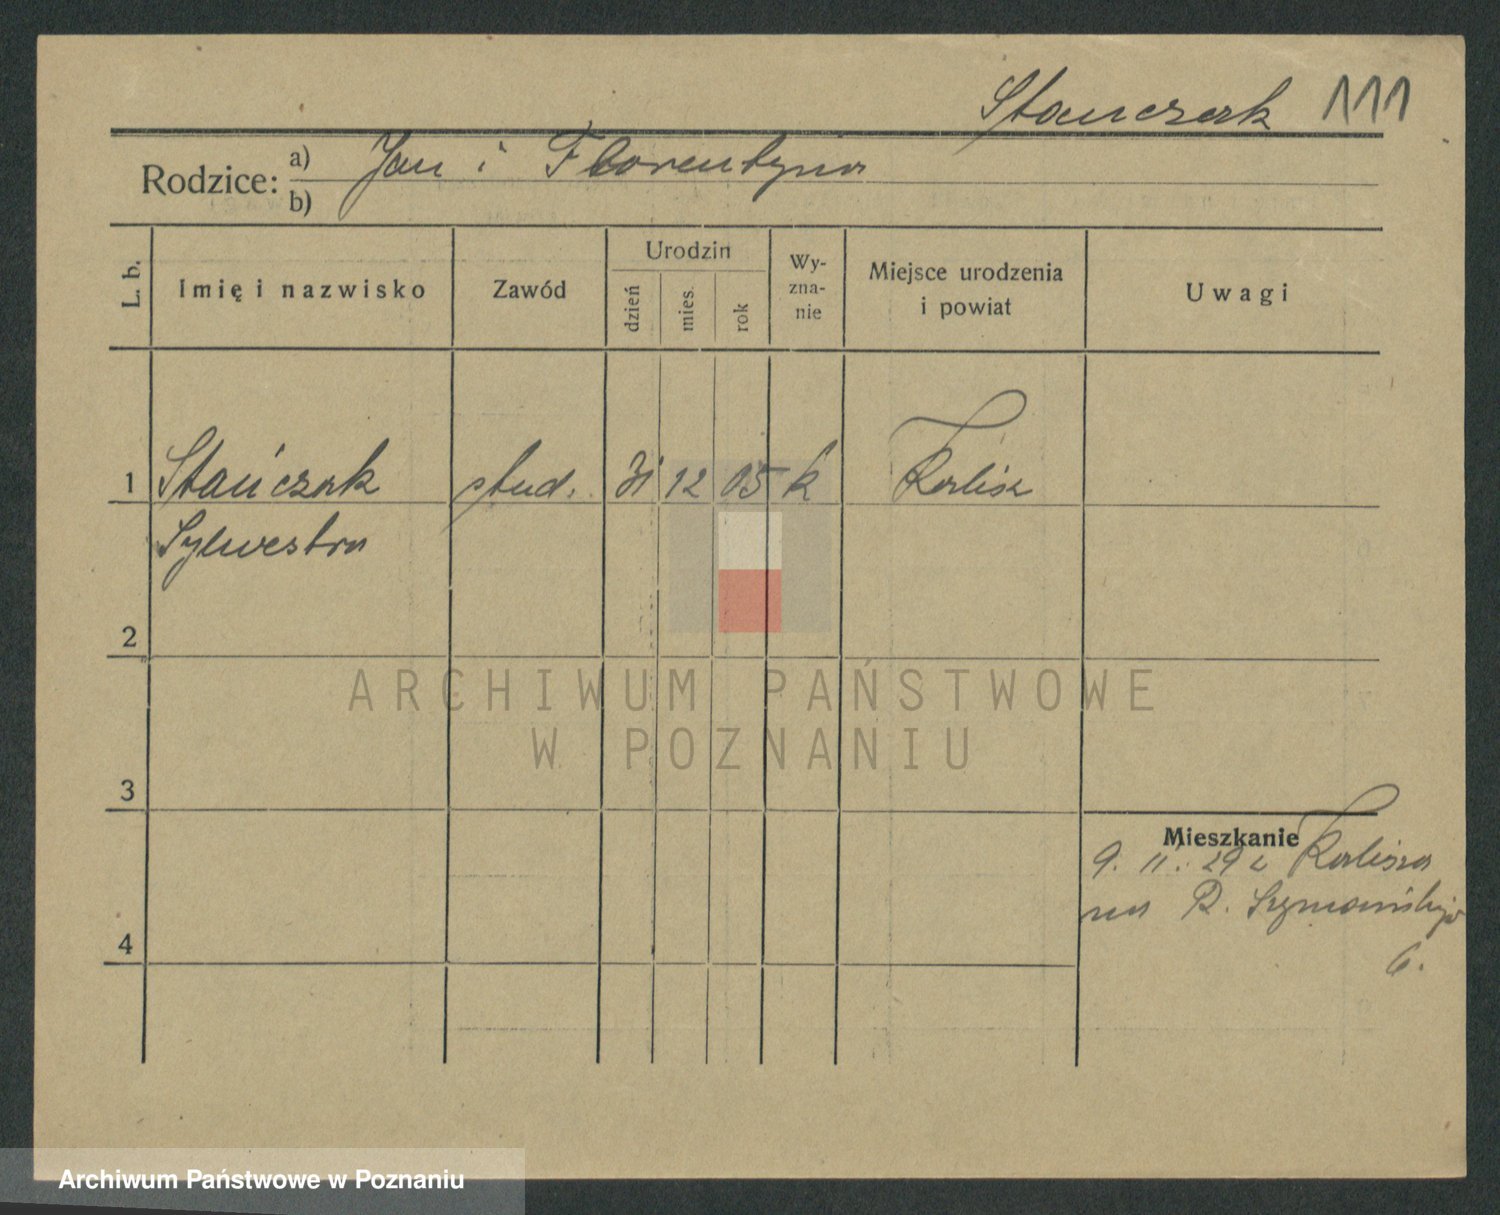 Stańczak 111
Rodzice: a) Jan i Florentyna
b)
L. b. Imię i nazwisko Zawód Urodzin dzień mies. rok Wy-zna-nie Miejsce urodzenia i powiat Uwagi
1 Stańczak stud. 31 12 05 k Kalisz
Sylwestra
2
ARCHIWUM PAŃSTWOWE
W POZNANIU
3
Mieszkanie
9. 11. 29 z Kalisza
na R. Szymańskiego
6.
4
Archiwum Państwowe w Poznaniu